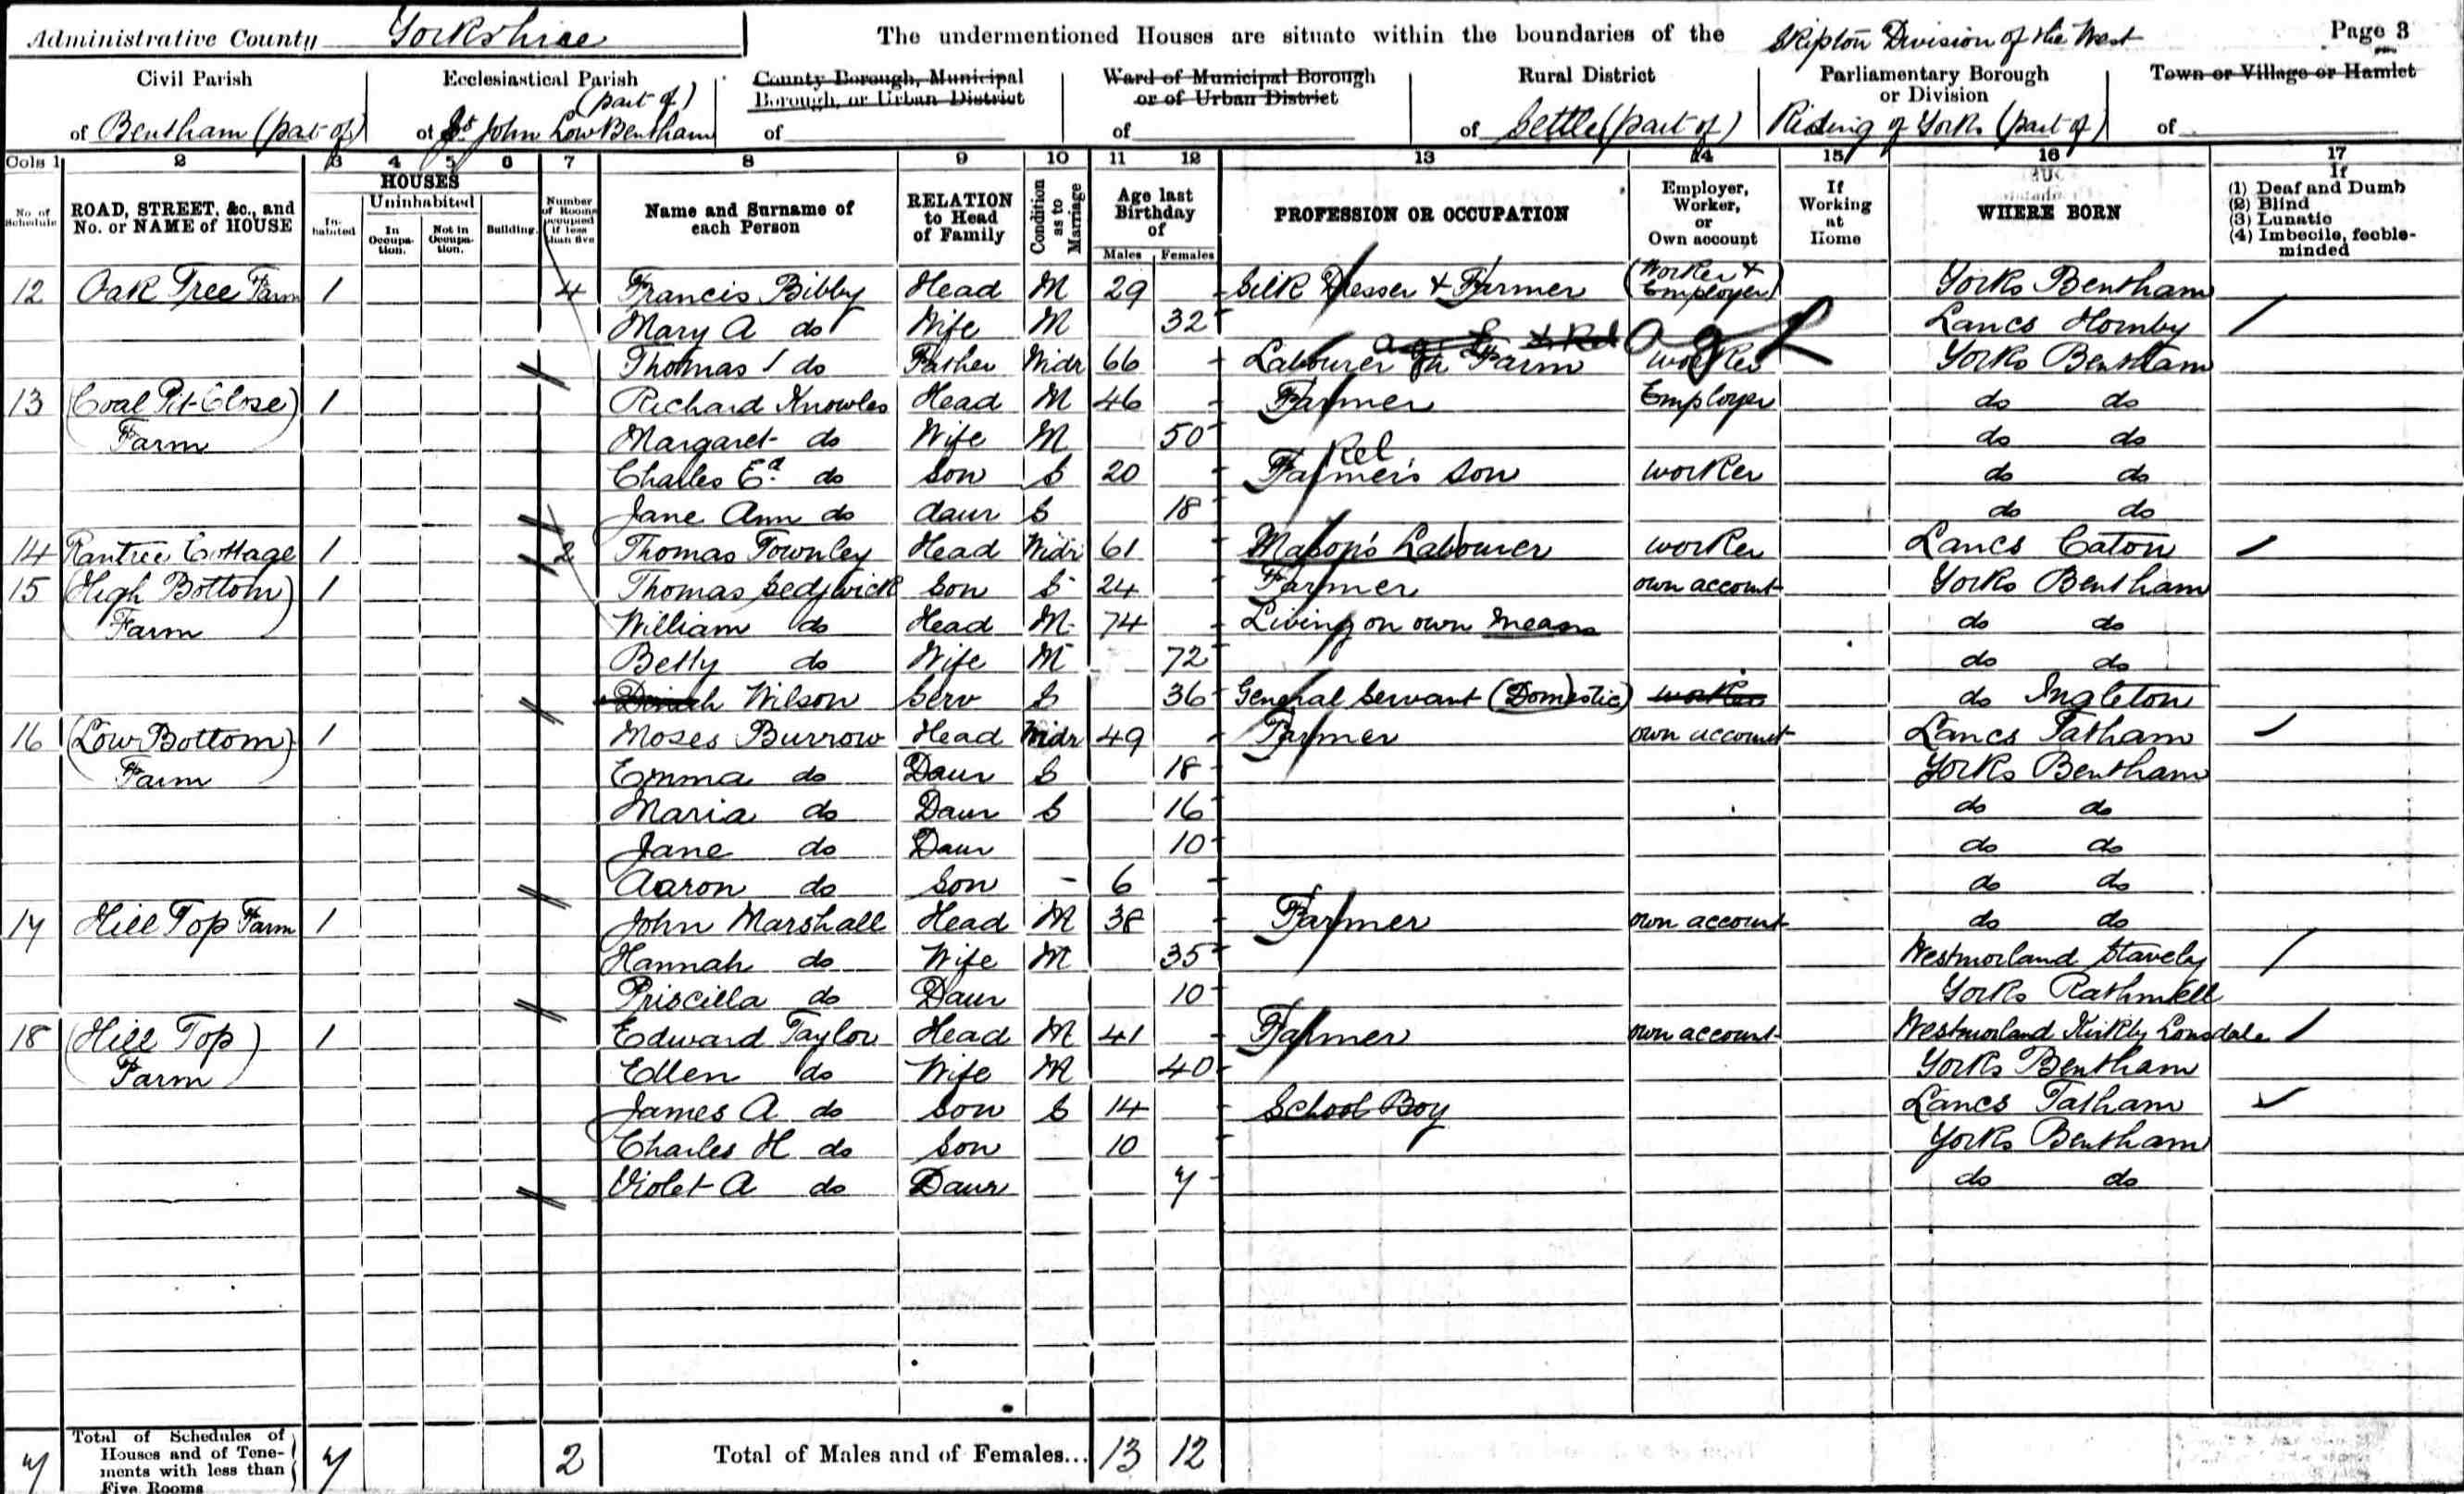 Administrative County Yorkshire The undermentioned Houses are situate within the boundaries of the Skipton Division of the West Page 3
Civil Parish Ecclesiastical Parish County Borough, Municipal Borough, or Urban District Ward of Municipal Borough or of Urban District Rural District Parliamentary Borough or Division Town or Village or Hamlet
of Bentham (part of) of St John Low Bentham (part of) of of of Settle (part of) Riding of Yorks (part of) of
Cols 1 2 3 4 5 6 7 8 9 10 11 12 13 14 15 16 17
No. of Schedule ROAD, STREET, &c., and No. or NAME of HOUSE HOUSES Inhabited Uninhabited In Occupation. Not in Occupation. Building. Number of Rooms occupied if less than five Name and Surname of each Person RELATION to Head of Family Condition as to Marriage Age last Birthday of Males Females PROFESSION OR OCCUPATION Employer, Worker, or Own account If Working at Home WHERE BORN If (1) Deaf and Dumb (2) Blind (3) Lunatic (4) Imbecile, feeble-minded
12 Oak Tree Farm 1 4 Francis Bibby Head M 29 Silk Dresser & Farmer (Worker & Employer) Yorks Bentham
Mary A do Wife M 32 Lancs Hornby
Thomas do Father Widr 66 Labourer on Farm worker Yorks Bentham
13 (Coal Pit Close) 1 Richard Knowles Head M 46 Farmer Employer do do
Farm Margaret do Wife M 50 do do
Charles Ed do Son S 20 Farmer's Son Rel worker do do
Jane Ann do daur S 18 do do
14 Rantree Cottage 1 2 Thomas Townley Head Widr 61 Mason's Labourer worker Lancs Caton
15 (High Bottom) 1 Thomas Sedgwick Son S 24 Farmer own account Yorks Bentham
Farm William do Head M 74 Living on own means do do
Betty do Wife M 72 do do
Dinah Wilson Serv S 36 General Servant (Domestic) worker do Ingleton
16 (Low Bottom) 1 Moses Burrow Head Widr 49 Farmer own account Lancs Tatham
Farm Emma do Daur S 18 Yorks Bentham
Maria do Daur S 16 do do
Jane do Daur 10 do do
Aaron do Son - 6 do do
17 Hill Top Farm 1 John Marshall Head M 38 Farmer own account do do
Hannah do Wife M 35 Westmorland Stavely
Priscilla do Daur 10 Yorks Rathmell
18 (Hill Top) 1 Edward Taylor Head M 41 Farmer own account Westmorland Kirkby Lonsdale
Farm Ellen do Wife M 40 Yorks Bentham
James A do Son S 14 School Boy Lancs Tatham
Charles H do Son 10 Yorks Bentham
Violet A do Daur 7 do do
7 Total of Schedules of Houses and of Tenements with less than Five Rooms 7 2 Total of Males and of Females... 13 12